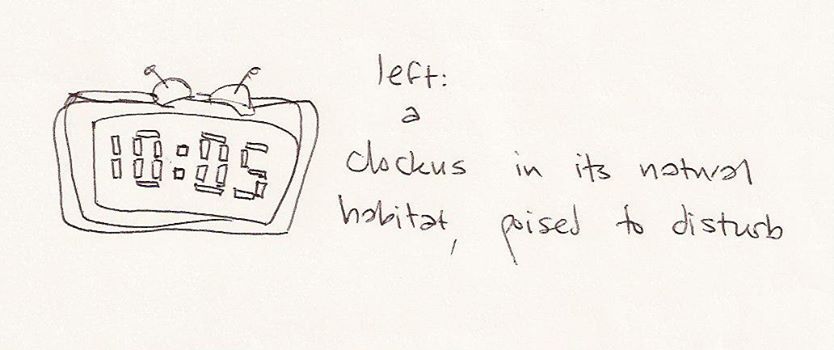 10:05
left:
a
clockus in its natural
habitat, poised to disturb